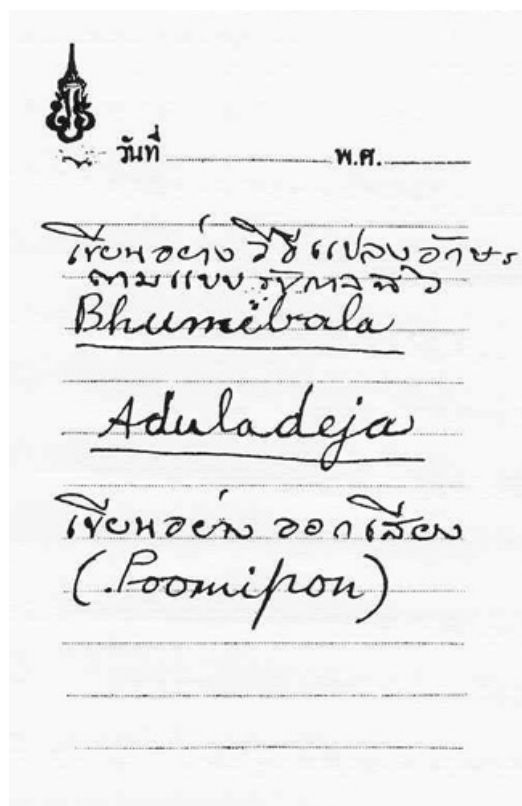 วันที่ พ.ศ.
เขียนอย่าง วิธี แปลงอักษร
ตามแบบ รัชกาลที่ ๖
Bhumibala
Aduladeja
เขียนอย่าง ออกเสียง
(Poomipon)